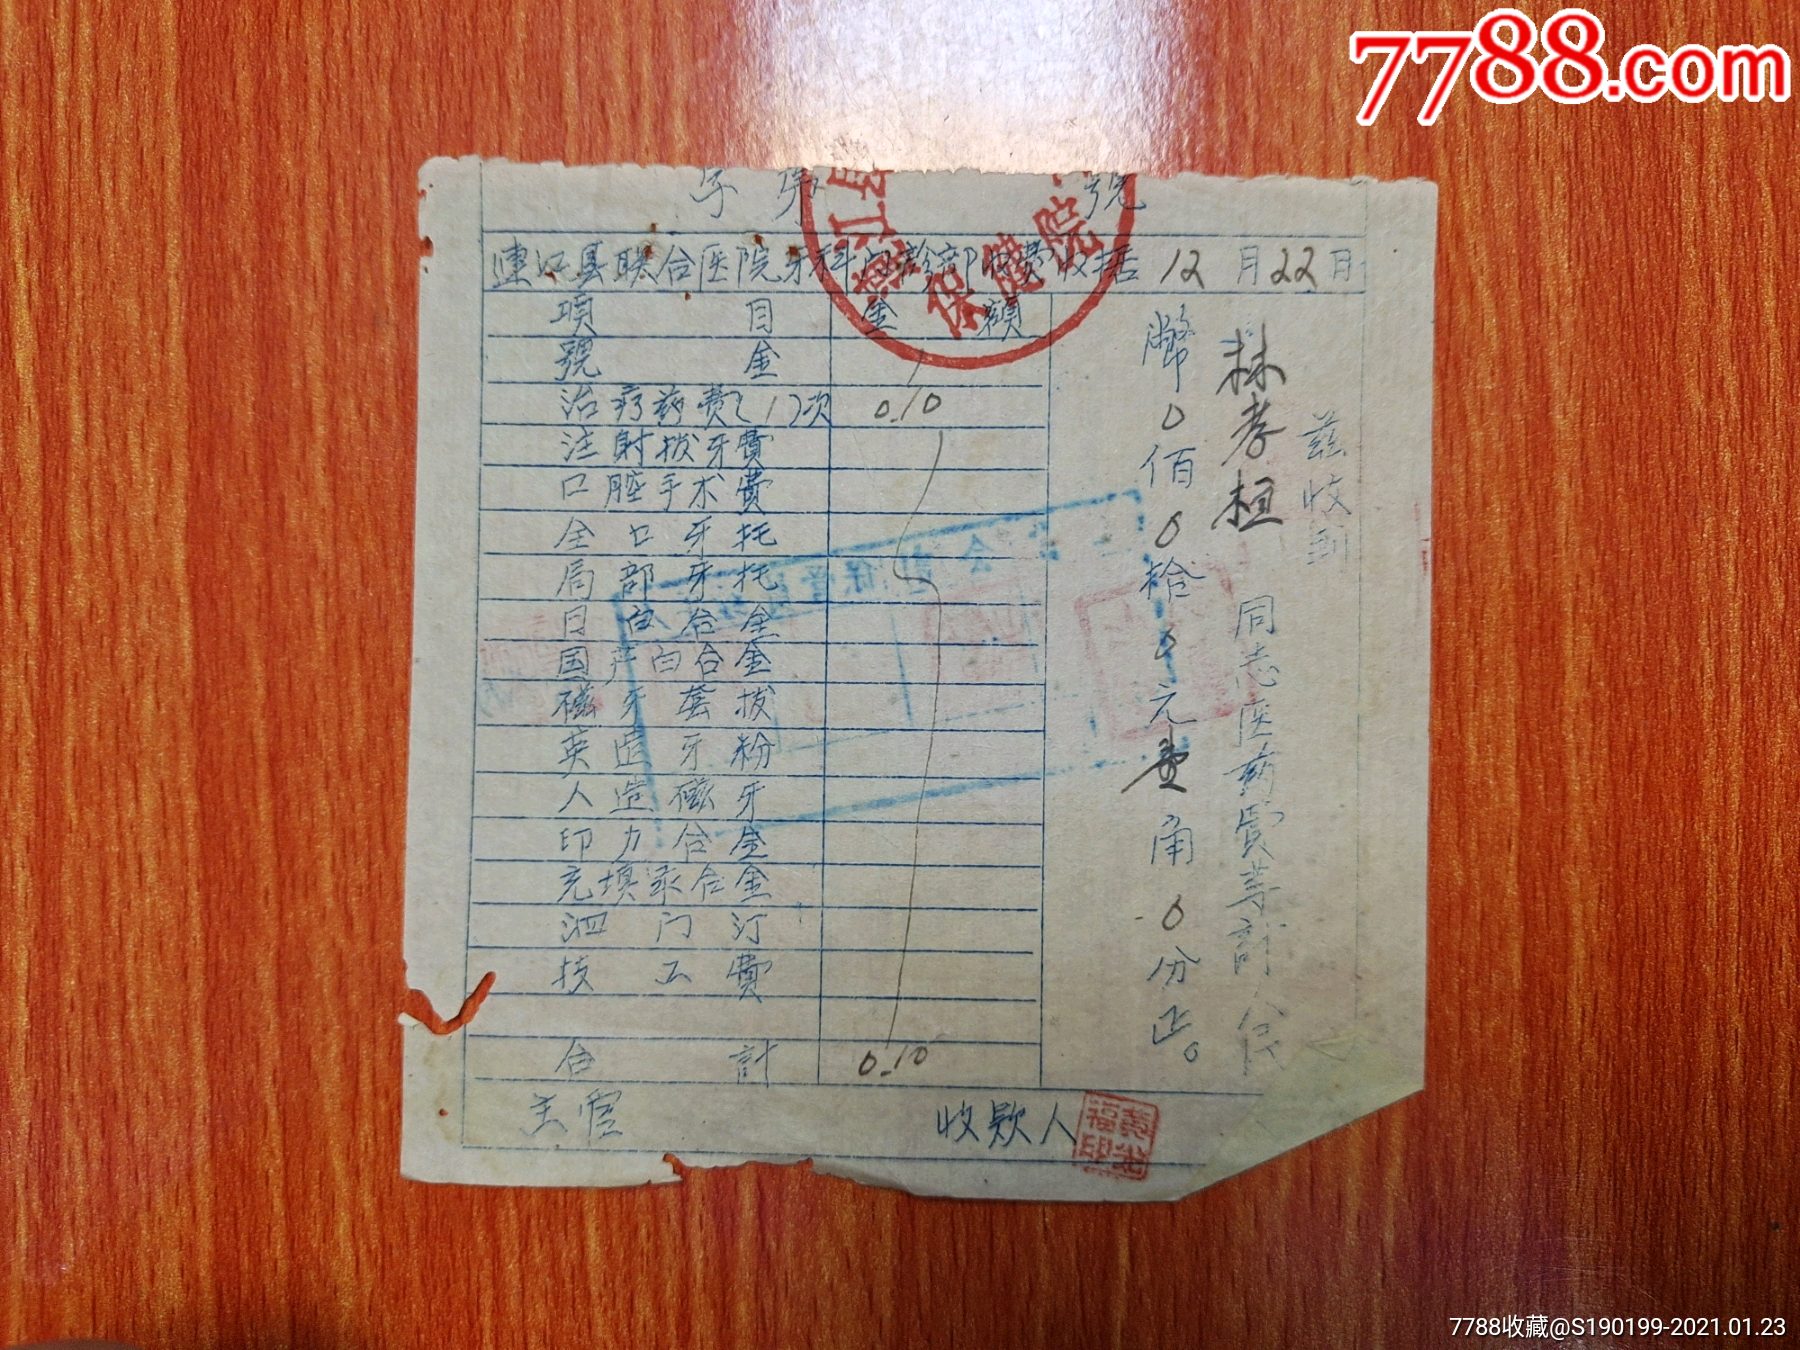 7788.com
字第 號
連江县联合医院牙科门診部收費收据 12月22日
項目 金額
號金
治疗药費(1)次 0.10
注射拔牙費
口腔手术費
全口牙托
局部牙托
日白合金
国产白合金
磁牙套拔
英造牙粉
人造磁牙
印力合金
充填汞合金
泗门汀
技工費
合計 0.10
兹收到
林孝桓同志医药費等計人民
幣0佰0拾0元壹角0分正。
主管 收款人
連江縣
保健院
7788收藏@S190199-2021.01.23